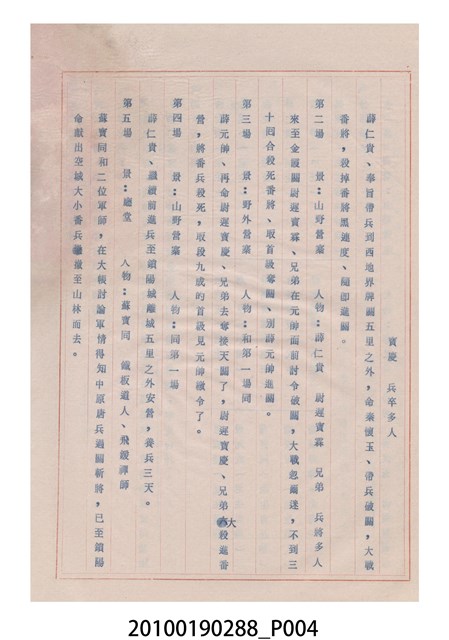 寶慶　兵卒多人
薛仁貴、奉旨帶兵到西地界牌關五里之外，命秦懷玉、帶兵破關，大戰
番將，殺掉番將黑連度、隨即進關。
第二場　景：山野營寨　人物：薛仁貴　尉遲寶霖　兄弟　兵將多人
來至金霞關尉遲寶霖、兄弟在元帥面前討令破關，大戰忽爾迷，不到三
十四合殺死番將、取首級奪關、別薛元帥進關。
第三場　景：野外營寨　人物：和第一場同
薛元帥、再命尉遲寶慶、兄弟去奪接天關了，尉遲寶慶、兄弟大殺進番
營，將番兵殺死，取段九成的首級見元帥繳令了。
第四場　景：山野營寨　人物：同第一場
薛仁貴、繼續前進兵至鎖陽城離城五里之外安營，養兵三天。
第五場　景：廳堂　人物：蘇寶同　鐵板道人、飛鈸禪師
蘇寶同和二位軍師，在大帳討論軍情得知中原唐兵過關斬將，已至鎖陽
命獻出空城大小番兵撤至山林而去。
20100190288_P004